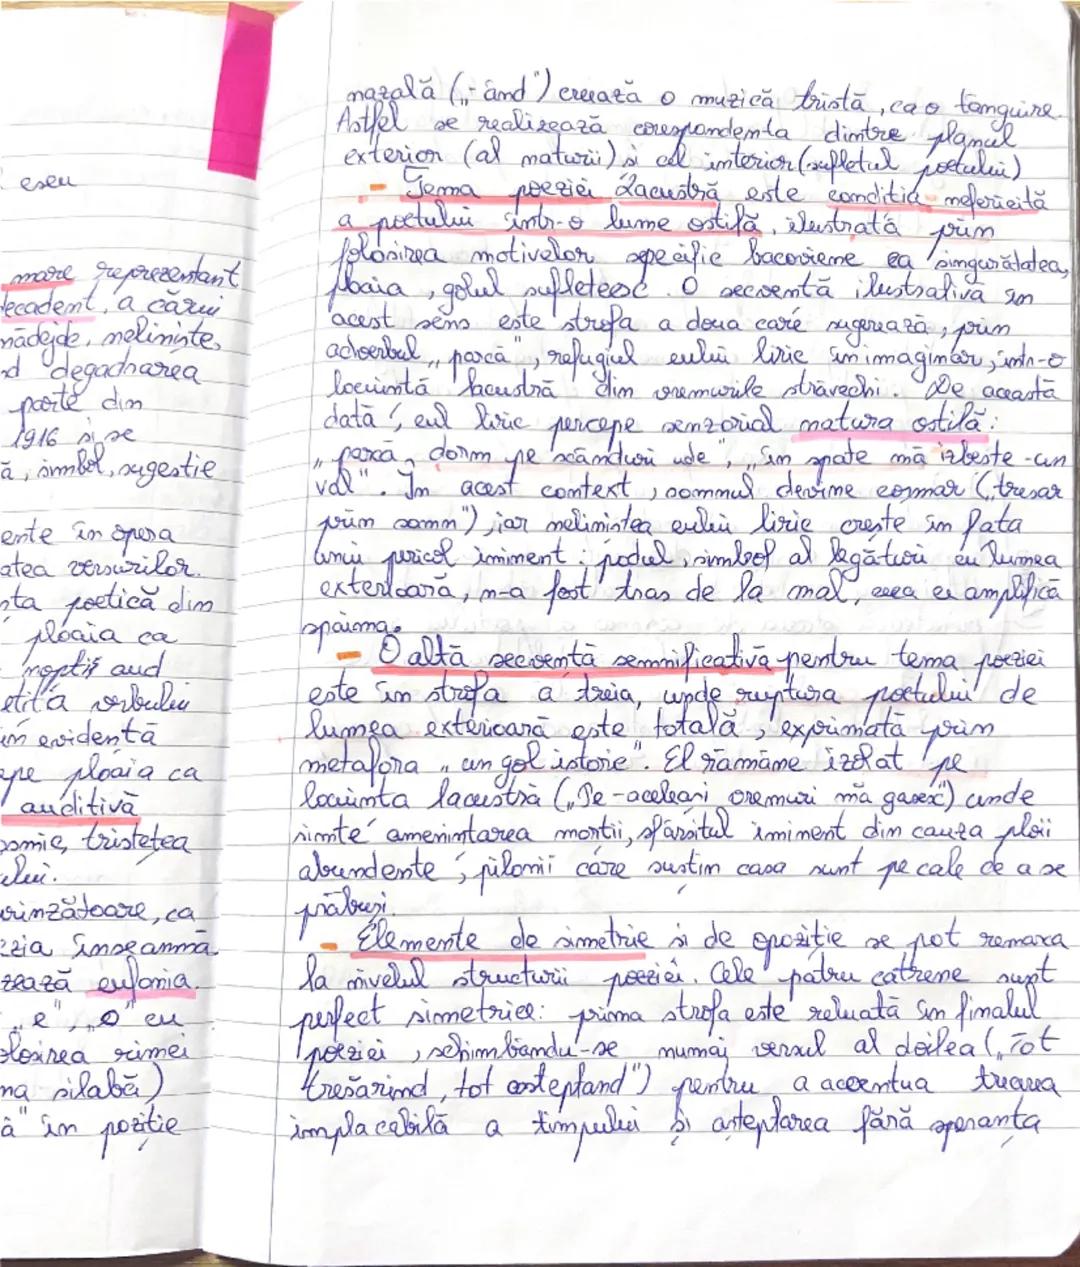 eseu
mare reprezentant
decadent, a cărui
nădejde, neliniște,
degadnarea
parte din
1916 și se
ă, simbol, sugestie
ente în opera
atea versurilor.
poetică din
ploaia ca
nopții aud
verbului
în evidentă
ploaia ca
auditivă
tristețea
ului.
ca
înseamnă
eufonia.
"e", "o" cu
rimei
silabă)
ă" în poziție
nazală („-ând") creează o muzică tristă, ca o tânguire.
Astfel se realizează corespondenta dintre planul
exterior (al naturii) și cel interior (sufletul poetului)
- Tema poeziei Lacustră este conditia nefericită
a poetului într-o lume ostilă, ilustrată prin
folosirea motivelor specific bacoviene ca singurătatea,
ploaia, golul sufletesc. O secventă ilustrativă în
acest sens este strofa a doua care sugerează, prin
adverbul „parcă", refugiul eului liric în imaginar, într-o
locuintă lacustră din vremurile străvechi. De această
dată, eul liric percepe senzorial natura ostilă:
„parcă dorm pe scânduri ude", „în spate mă izbeste-un
val". În acest context, somnul devine cosmar („tresar
prin somn"), iar nelinistea eului liric creste în fata
unui pericol iminent: podul, simbol al legăturii cu lumea
exterioară, n-a fost tras de la mal, ceea ce amplifică
spaima.
- O altă secventă semnificativă pentru tema poeziei
este în strofa a treia, unde ruptura poetului de
lumea exterioară este totală, exprimată prin
metafora „un gol istoric". El rămâne izolat pe
locuinta lacustră („Pe-aceleasi vremuri mă gasesc") unde
simte amenintarea mortii, sfârsitul iminent din cauza ploii
abundente, pilonii care sustin casa sunt pe cale de a se
prăbusi.
- Elemente de simetrie si de opoziție se pot remarca
la nivelul structurii poeziei. Cele patru catrene sunt
perfect simetrice: prima strofa este reluată în finalul
poeziei, schimbându-se numai versul al doilea („Tot
tresărind, tot asteptand") pentru a accentua trecerea
implacabilă a timpului și asteptarea fără speranța